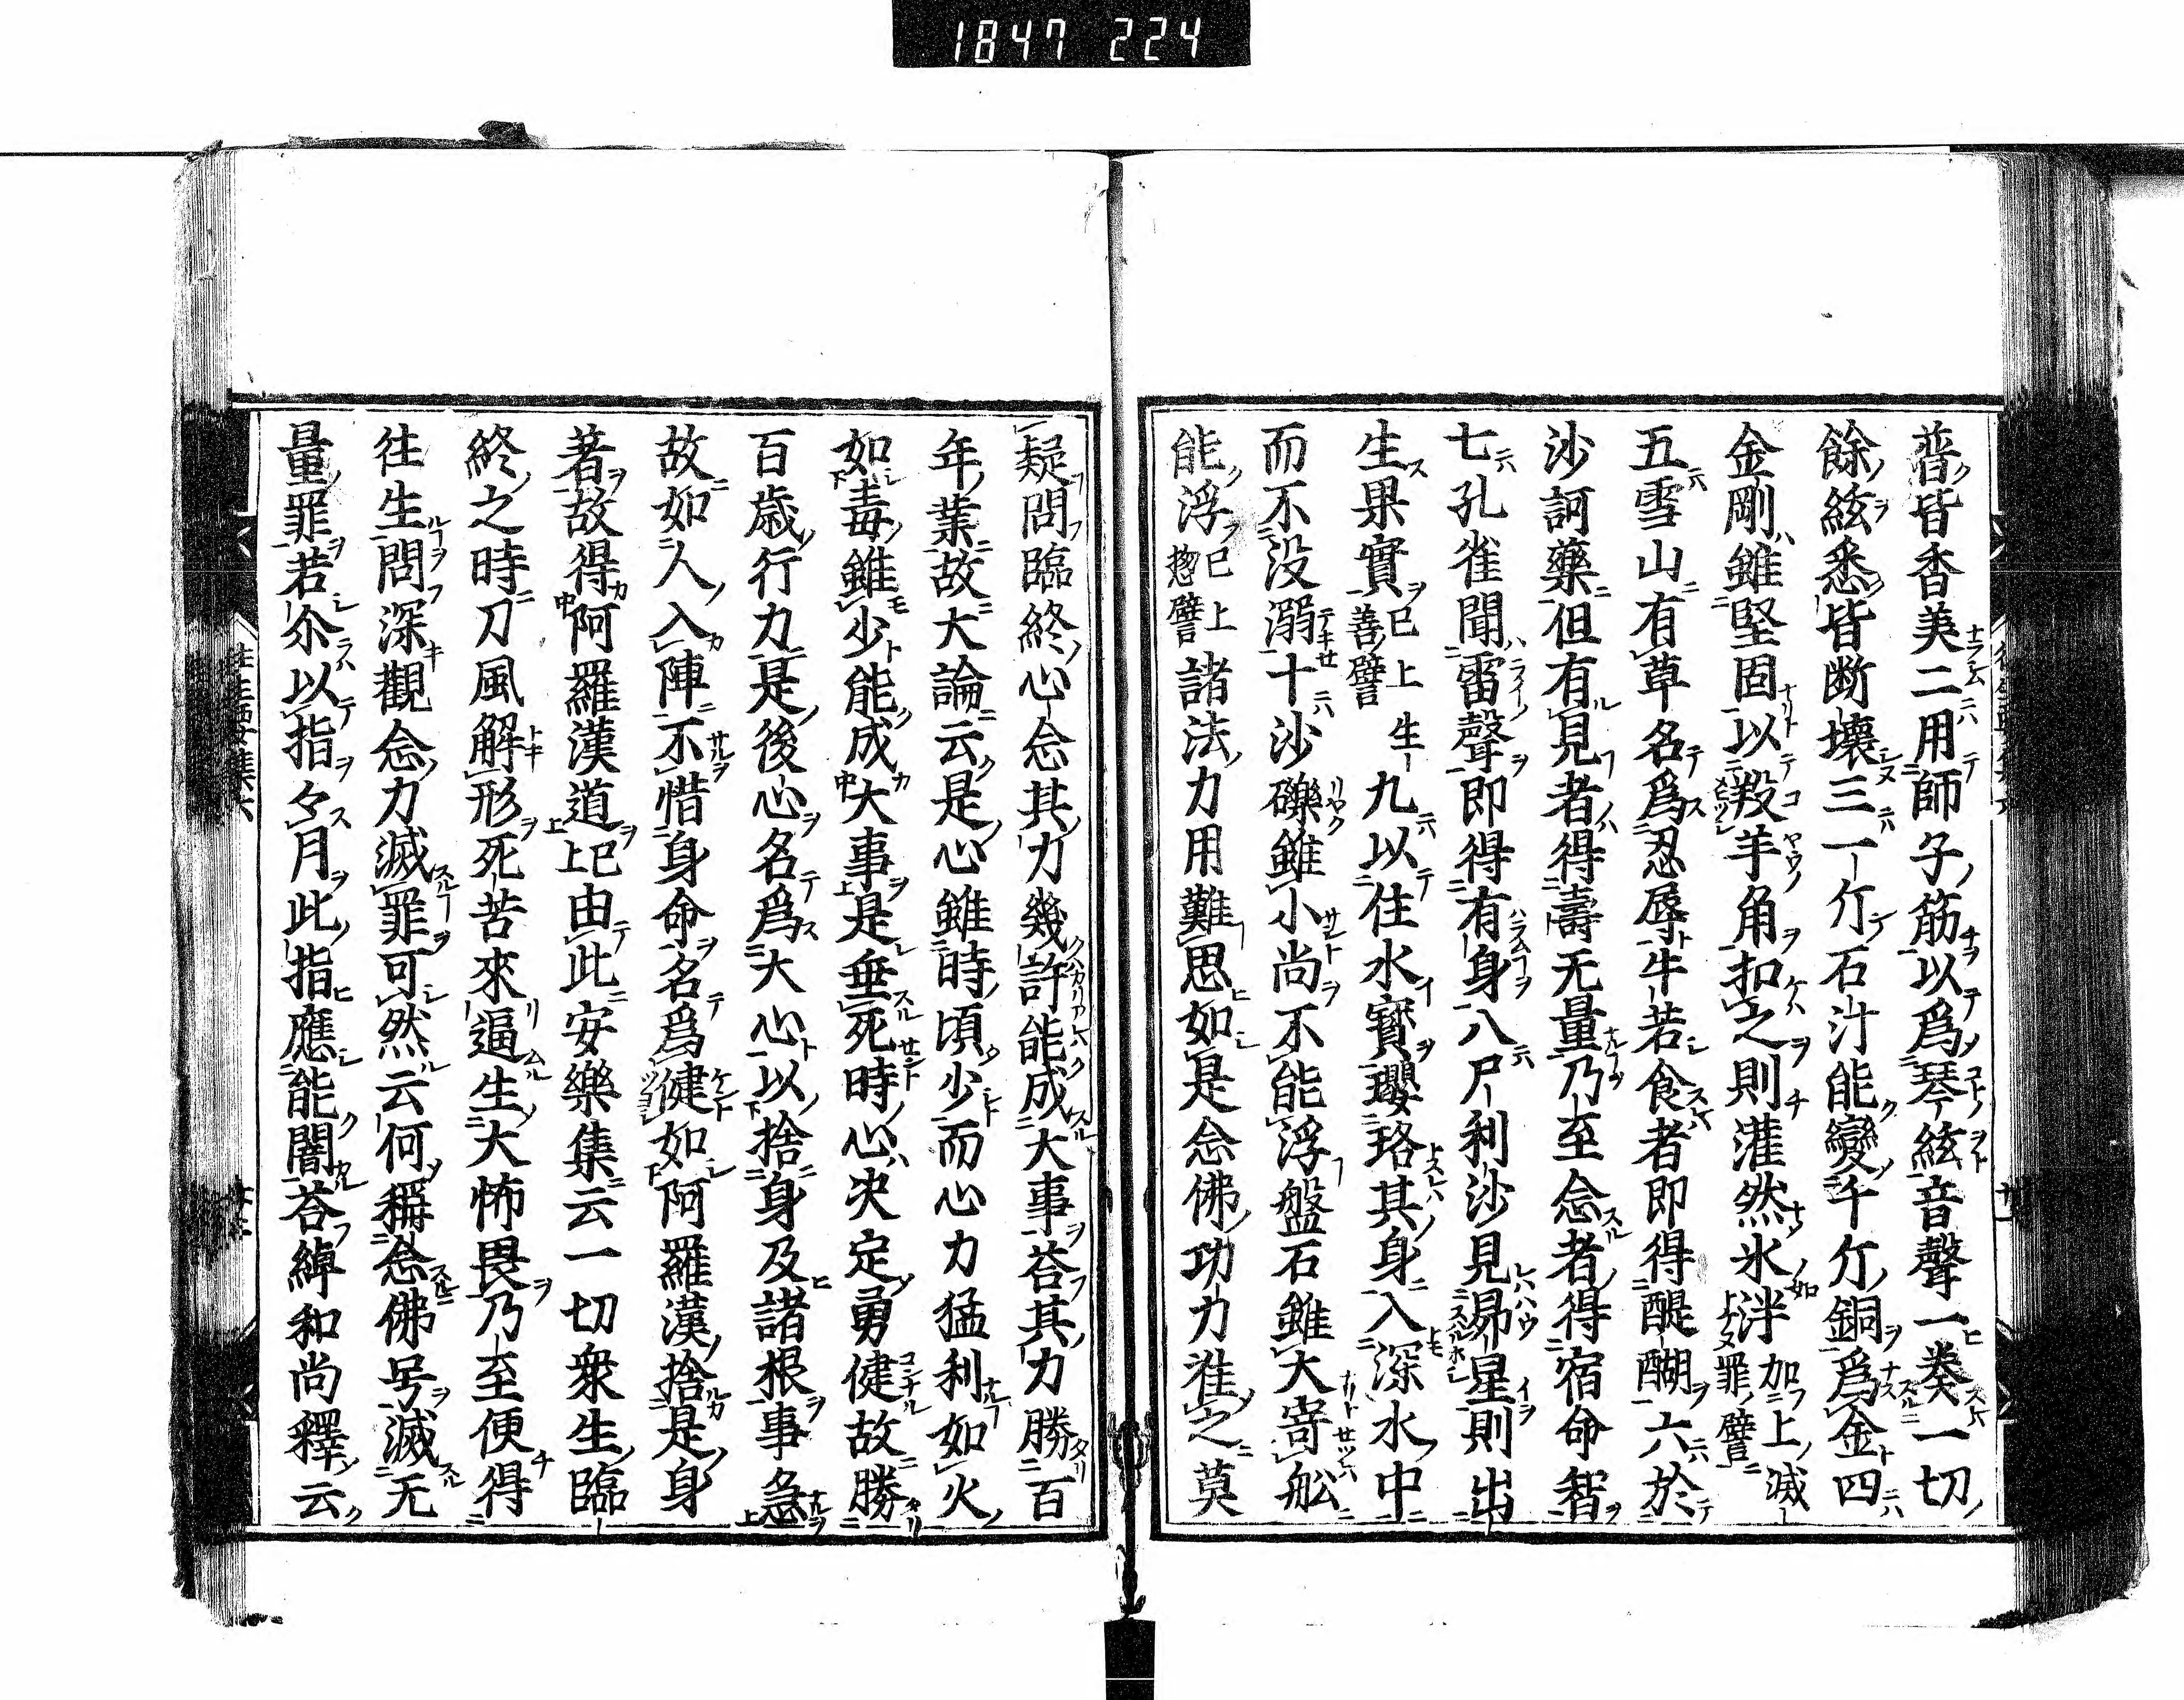 1847 224
普皆香美二用師子筋以爲琴絃音聲一奏一切
餘絃悉皆断壞三一斤石汁能變千斤銅爲金四
金剛雖堅固以羖羊角扣之則灌然氷泮加上滅罪譬
五雪山有草名爲忍辱牛若食者即得醍醐六於
沙訶藥但有見者得壽无量乃至念者得宿命智
七孔雀聞雷聲即得有身八尸利沙見昴星則出
生果實已上生善譬九以住水寳瓔珞其身入深水中
而不没溺十沙礫雖小尚不能浮盤石雖大寄舩
能浮已上惣譬諸法力用難思如是念佛功力准之莫
疑問臨終心念其力幾許能成大事荅其力勝百
年業故大論云是心雖時頃少而心力猛利如火
如毒雖少能成大事是垂死時心决定勇健故勝
百歳行力是後心名爲大心以捨身及諸根事急
故如人入陣不惜身命名爲健如阿羅漢捨是身
著故得阿羅漢道已上由此安樂集云一切衆生臨
終之時刀風解形死苦來逼生大怖畏乃至便得
往生問深觀念力滅罪可然云何稱念佛号滅无
量罪若尒以指々月此指應能闇荅綽和尚釋云